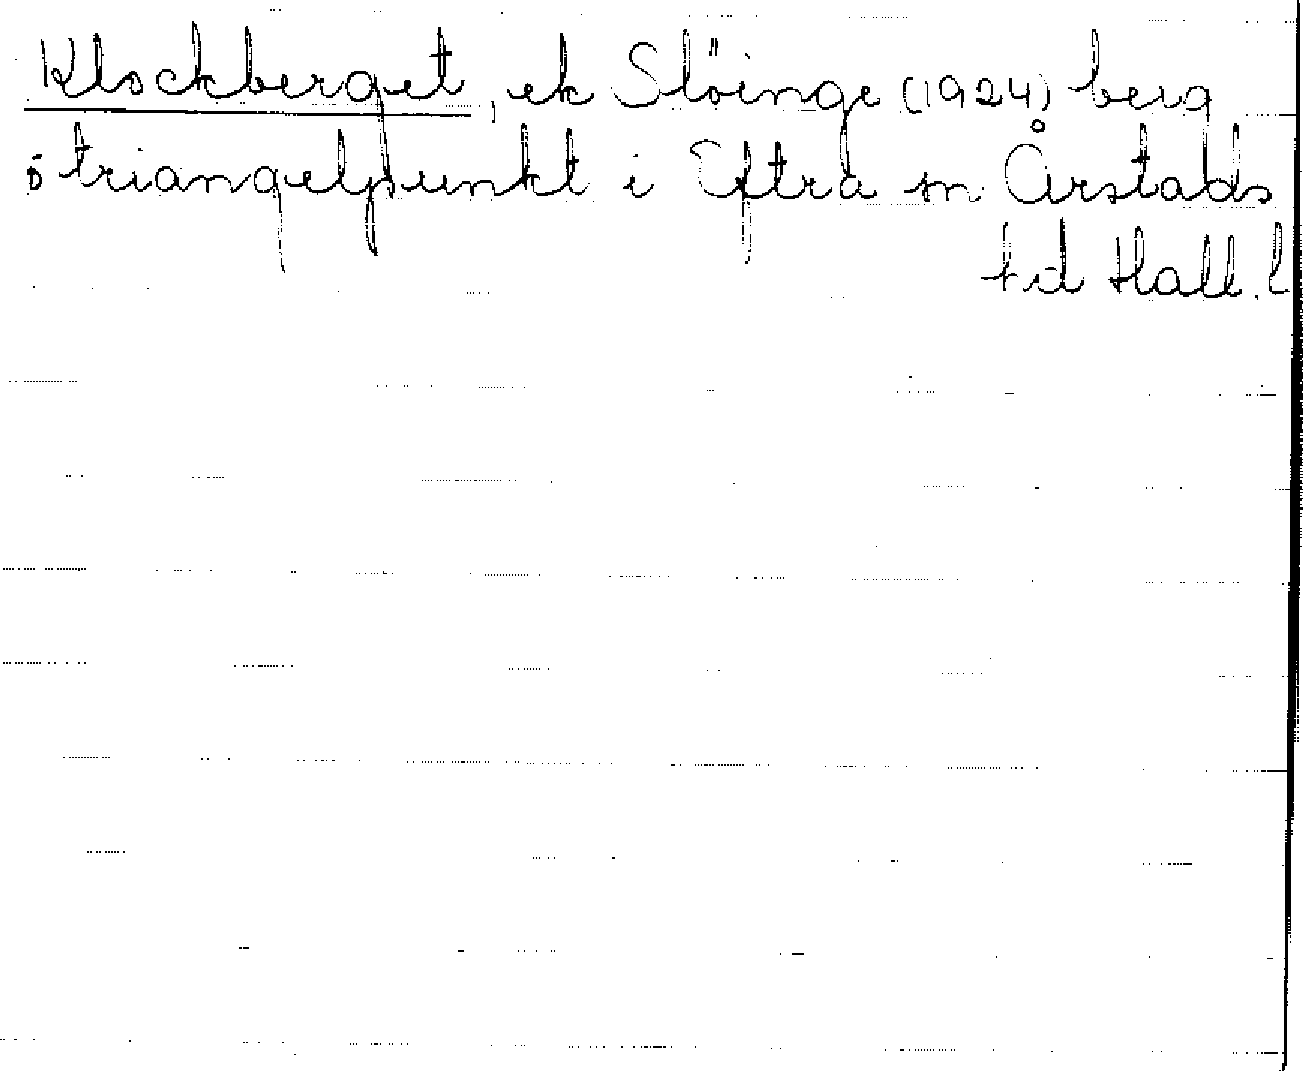 Klockberget, ek Slöinge (1924) berg
o triangelpunkt i Eftra sn Årstads
hd Hall. l